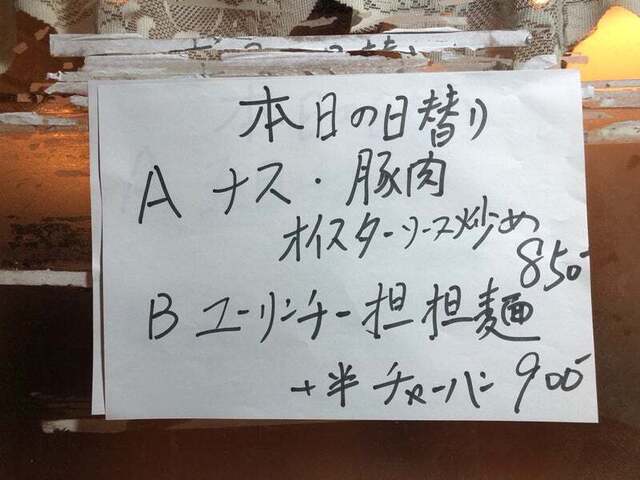 本日の日替り
A ナス・豚肉
オイスターソース炒め
850
B ユーリンチー担担麺
+半チャーハン 900